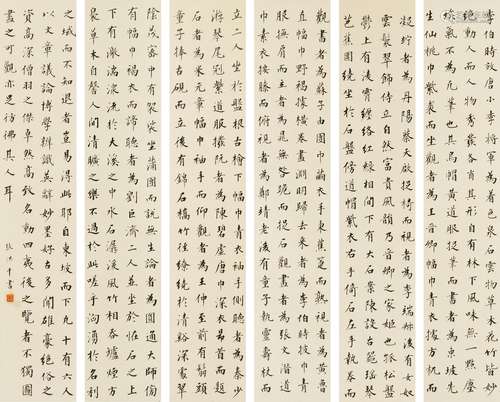 李伯時效唐小李將軍為著色泉石雲物草木花竹皆妙
絕動人而人物秀發各肖其形自有林下風味無一點塵
埃氣不為凡筆也其烏帽黃道服捉筆而書者為東坡先
生仙桃巾紫裘而坐觀者為王晉卿幅巾青衣據方机而
凝佇者為丹陽蔡天啟捉椅而視者為李端叔後有女奴
雲鬟翠飾侍立自然富貴風韻乃晉卿之家姬也孤松盤
鬱上有凌霄纏絡紅綠相間下有大石案陳設古器瑤琴
芭蕉圍繞坐於石盤傍道帽紫衣右手倚石左手執卷而
觀書者為蘇子由團巾繭衣手秉蕉箑而熟視者為黃魯
直幅巾野褐據橫卷畫淵明歸去來者為李伯時披巾青
服撫肩而立者為晁無咎跪而捉石觀畫者為張文潛道
巾素衣按膝而俯視者為鄭靖老後有童子執靈壽杖而
立二人坐於盤根古檜下幅巾青衣袖手側聽者為秦少
游琴尾冠紫道服摘阮者為陳碧虛唐巾深衣昂首而題
石者為米元章幅巾袖手而仰觀者為王仲至前有鬅頭
童子捧古硯而立後有錦石橋竹徑繚繞於清谿深處翠
陰茂密中有袈裟坐蒲團而說無生論者為圓通大師傍
有幅巾褐衣而諦聽者為劉巨濟二人並坐於怪石之上
下有激湍淙流於大溪之中水石潺湲風竹相吞爐煙方
裊草木自馨人間清曠之樂不過於此嗟乎洶湧於名利
之域而不知退者豈易得此耶自東坡而下凡十有六人
以文章議論博學辨識英辭妙墨好古多聞雄豪絕俗之
資高深僧羽之傑卓然高致名動四夷後之覽者不獨圖
畫之可觀亦足彷彿其人耳